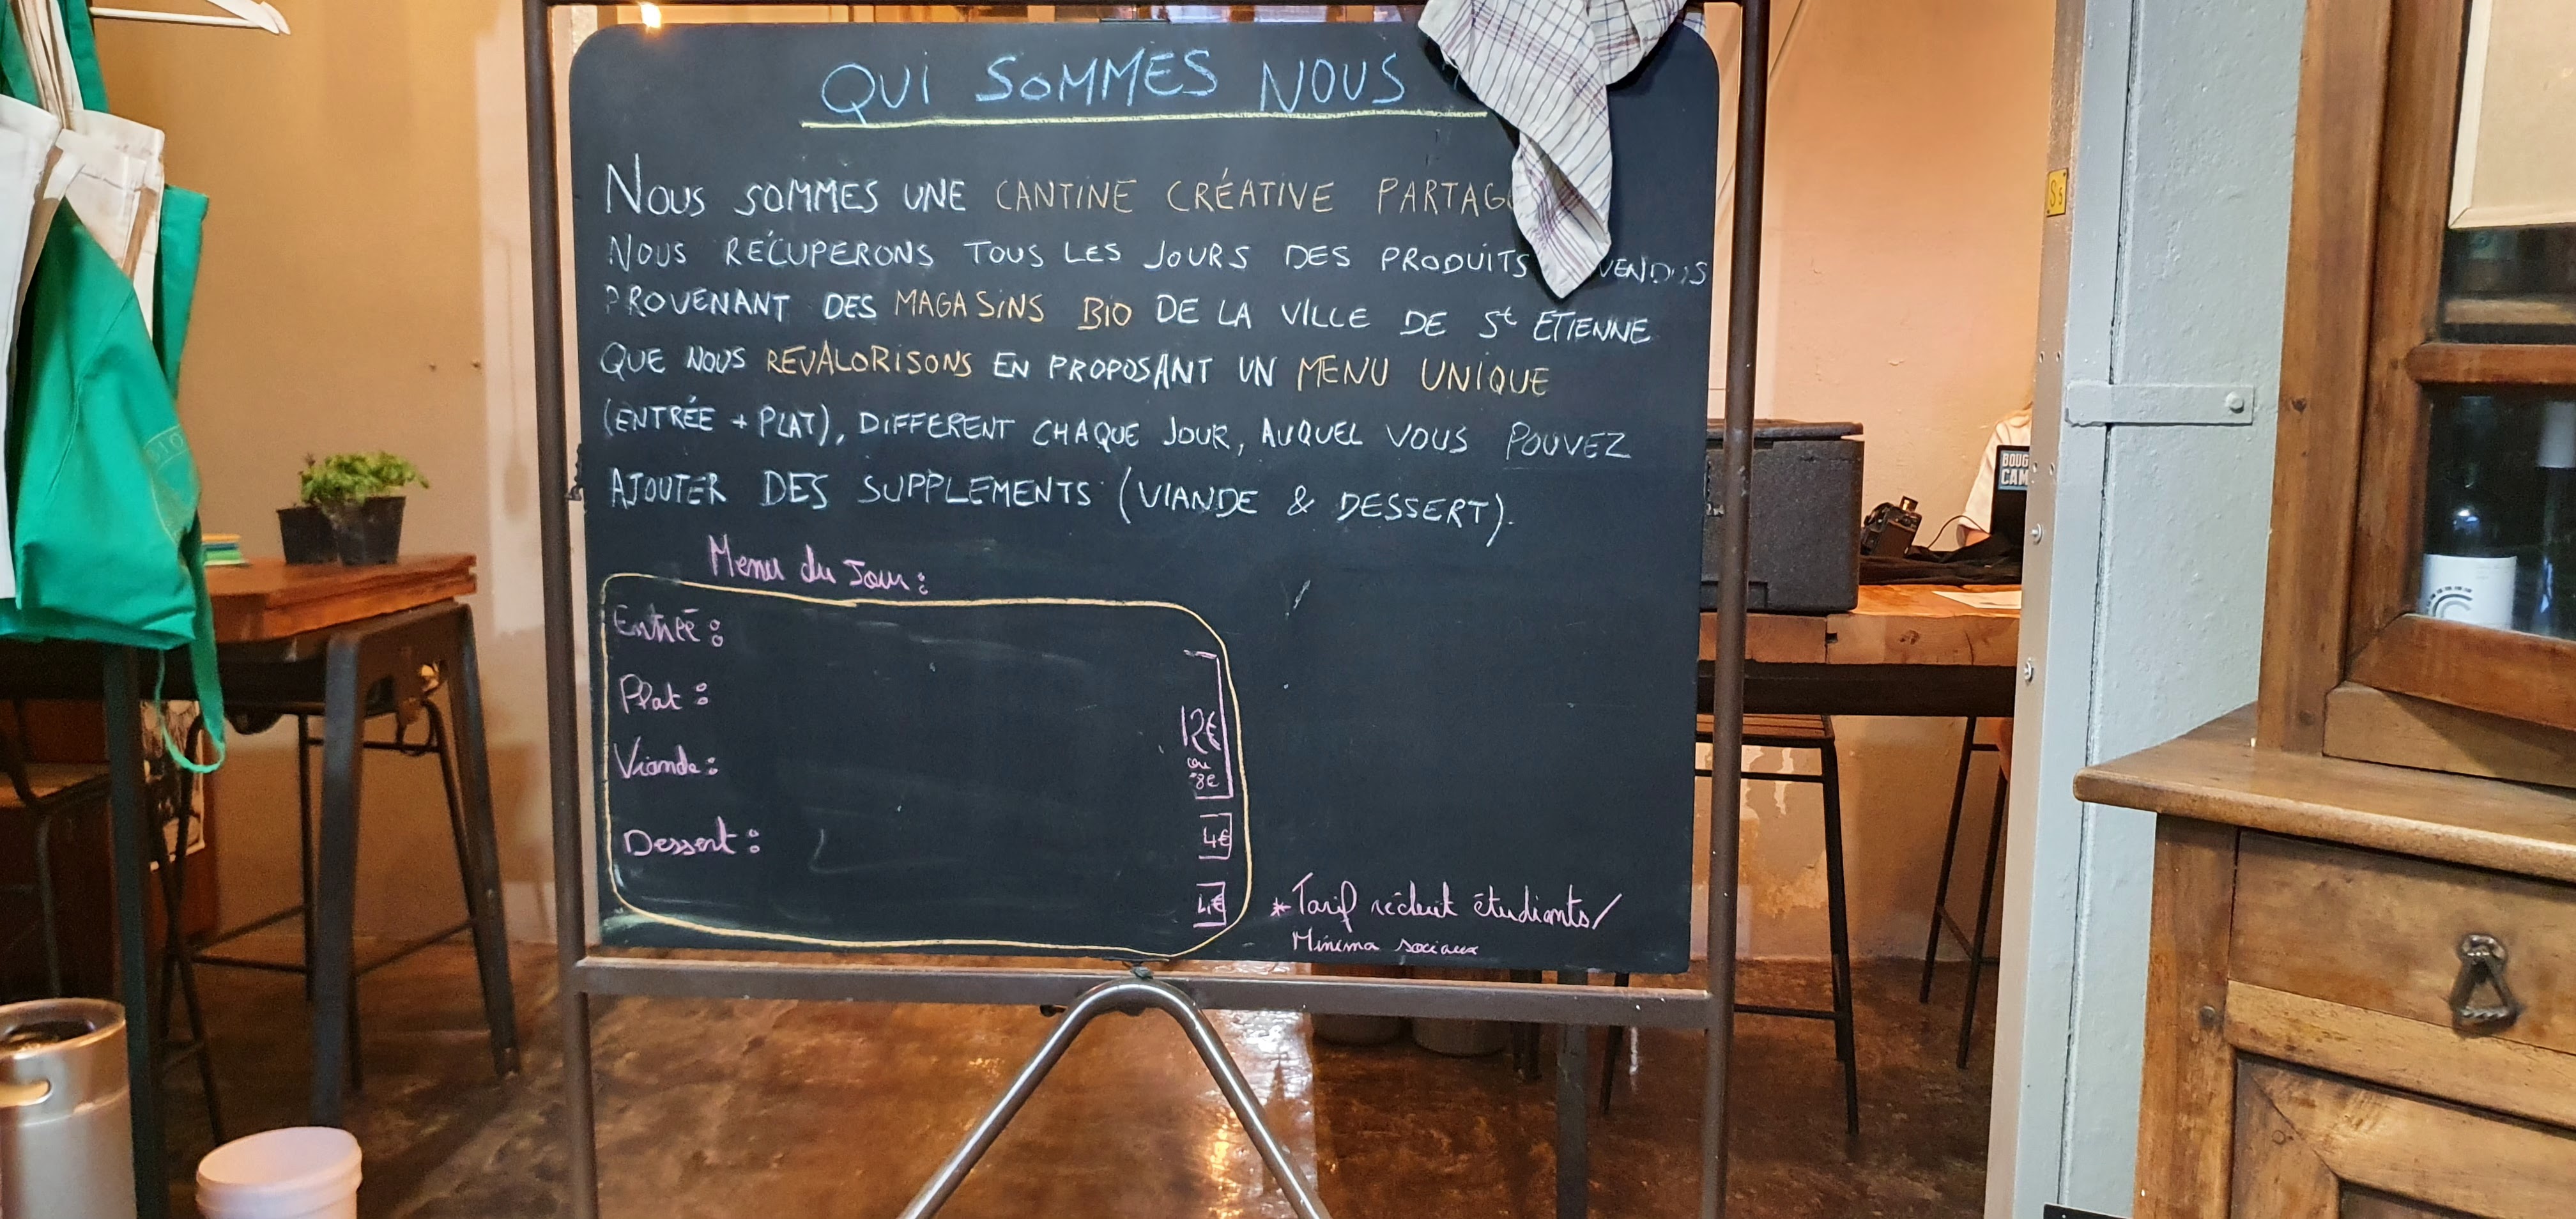 QUI SOMMES NOUS
NOUS SOMMES UNE CANTINE CRÉATIVE PARTAG
NOUS RÉCUPERONS TOUS LES JOURS DES PRODUITS VENDUS
PROVENANT DES MAGASINS BIO DE LA VILLE DE St ETIENNE
QUE NOUS REVALORISONS EN PROPOSANT UN MENU UNIQUE
(ENTRÉE + PLAT), DIFFERENT CHAQUE JOUR, AUQUEL VOUS POUVEZ
AJOUTER DES SUPPLEMENTS (VIANDE & DESSERT).
Menu du Jour :
Entrée :
Plat :
12€
ou
*8€
Viande :
4€
Dessert :
4€
*Tarif réduit étudiants/
Minima sociaux
BOUG
CAM